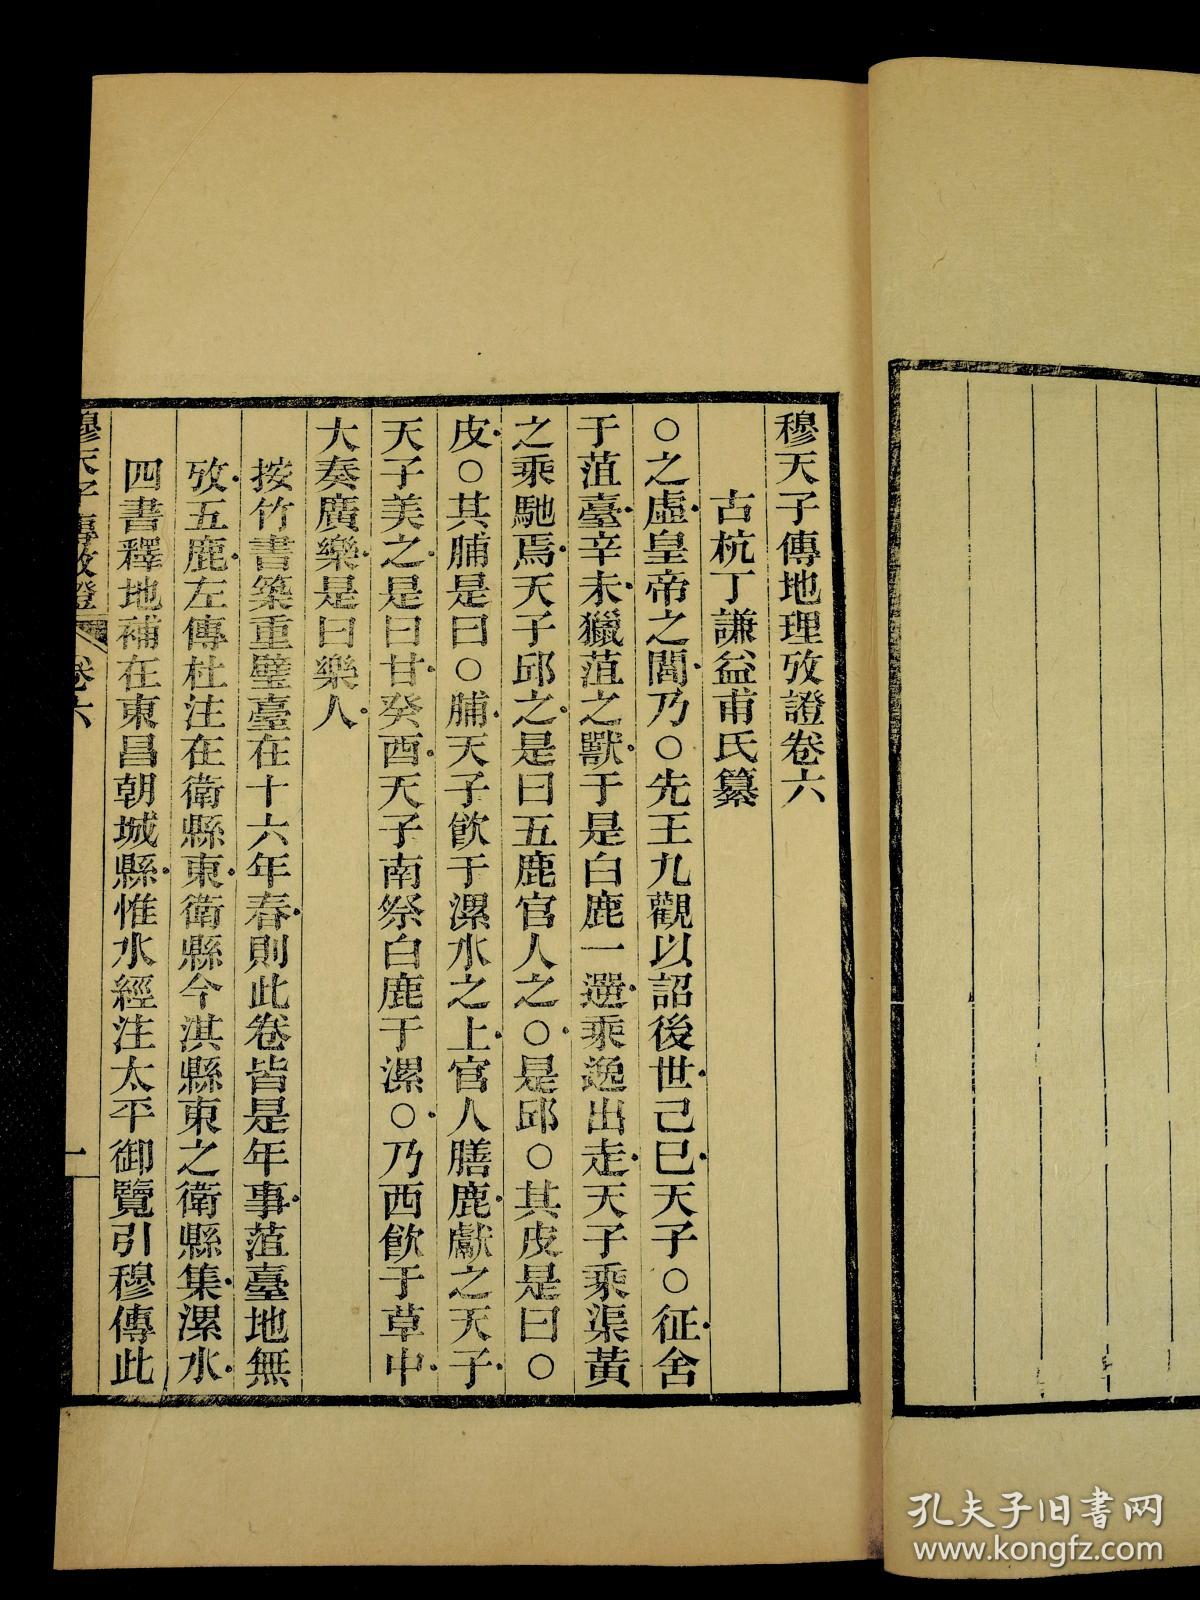 穆天子傳地理攷證卷六
古杭丁謙益甫氏纂
○之虛皇帝之閭乃○先王九觀以詔後世己巳天子○征舍
于菹臺辛未獵菹之獸于是白鹿一遻乘逸出走天子乘渠黃
之乘馳焉天子邱之是曰五鹿官人之○是邱○其皮是曰○
皮○其脯是曰○脯天子飮于漯水之上官人膳鹿獻之天子
天子美之是曰甘癸酉天子南祭白鹿于漯○乃西飮于草中
大奏廣樂是曰樂人
按竹書築重璧臺在十六年春則此卷皆是年事菹臺地無
攷五鹿左傳杜注在衛縣東衛縣今淇縣東之衛縣集漯水
四書釋地補在東昌朝城縣惟水經注太平御覽引穆傳此
穆天子傳攷證 卷六 一
孔夫子旧书网
www.kongfz.com